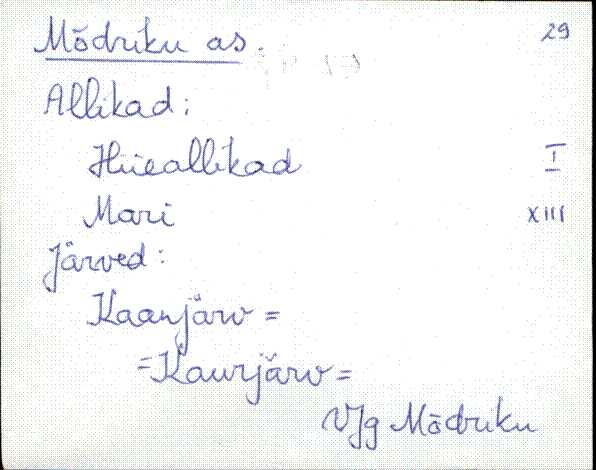 Mõdriku as. 29
Allikad:
Hiieallikad I
Mari XIII
Järved:
Kaanjärv =
= Kaurjärv =
VJg Mõdriku